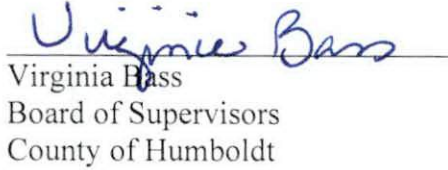 Virginia Bass
Virginia Bass
Board of Supervisors
County of Humboldt